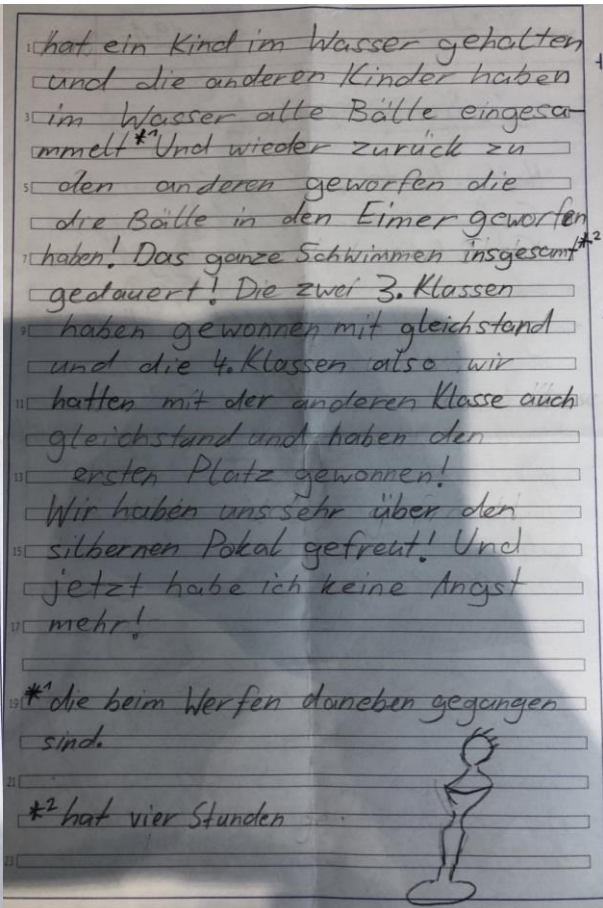 1 hat ein Kind im Wasser gehalten
und die anderen Kinder haben
3 im Wasser alle Bälle eingesa-
mmelt *1 Und wieder zurück zu
5 den anderen geworfen die
die Bälle in den Eimer geworfen
7 haben! Das ganze Schwimmen insgesamt *2
gedauert! Die zwei 3. Klassen
9 haben gewonnen mit gleichstand
und die 4. Klassen also wir
11 hatten mit der anderen Klasse auch
gleichstand und haben den
13 ersten Platz gewonnen!
Wir haben uns sehr über den
15 silbernen Pokal gefreut! Und
jetzt habe ich keine Angst
17 mehr!
19 *1 die beim Werfen daneben gegangen
sind.
21
*2 hat vier Stunden
23